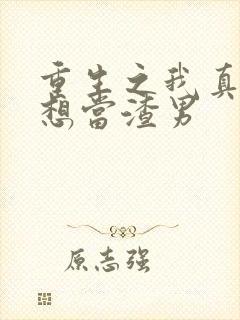 重生之我真
想当渣男
原志强